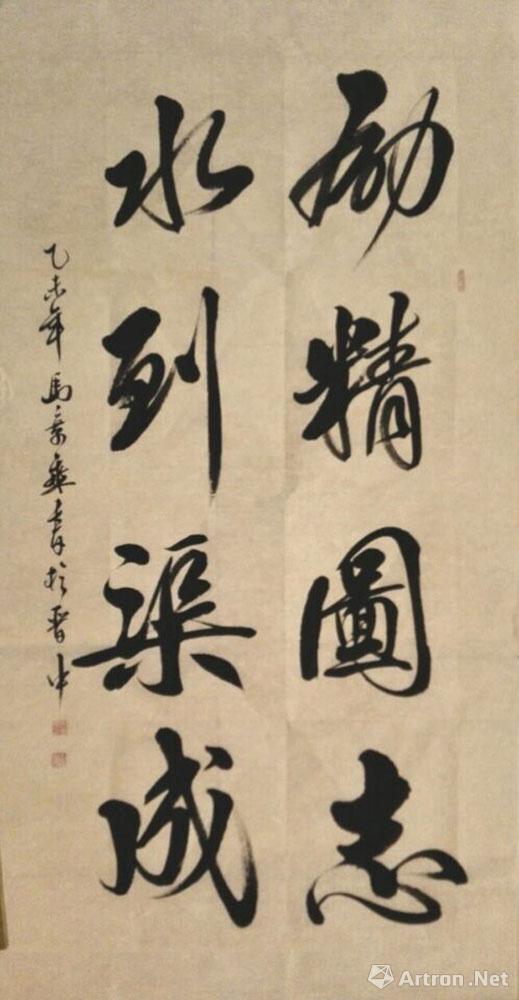 励精圖志
水到渠成
乙未年馬 書於晋中
Artron.Net